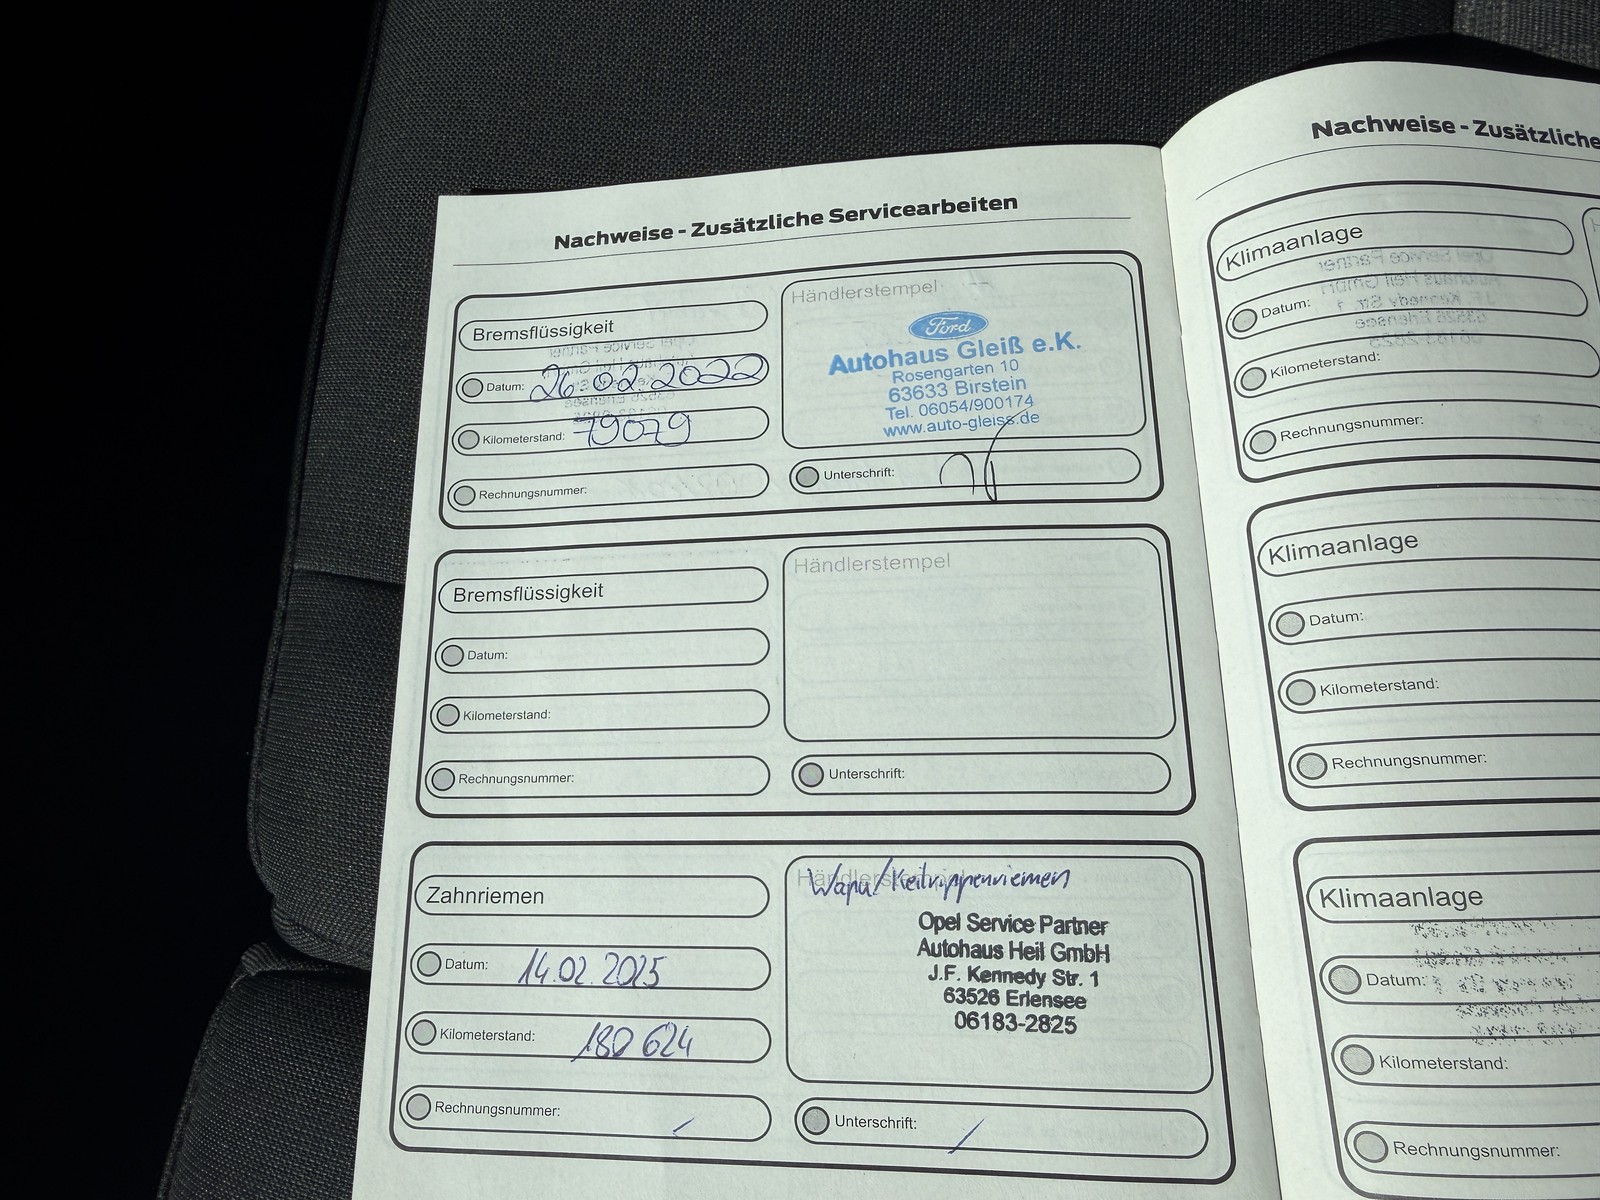 Nachweise - Zusätzliche Servicearbeiten
Bremsflüssigkeit
Datum: 26.02.2022
Kilometerstand: 79079
Rechnungsnummer:
Händlerstempel
Ford
Autohaus Gleiß e.K.
Rosengarten 10
63633 Birstein
Tel. 06054/900174
www.auto-gleiss.de
Unterschrift:
Bremsflüssigkeit
Datum:
Kilometerstand:
Rechnungsnummer:
Händlerstempel
Unterschrift:
Zahnriemen
Datum: 14.02.2025
Kilometerstand: 180 624
Rechnungsnummer:
Händlerstempel
Wapu/Keilrippenriemen
Opel Service Partner
Autohaus Heil GmbH
J.F. Kennedy Str. 1
63526 Erlensee
06183-2825
Unterschrift:
Nachweise - Zusätzliche
Klimaanlage
Datum:
Kilometerstand:
Rechnungsnummer:
Klimaanlage
Datum:
Kilometerstand:
Rechnungsnummer:
Klimaanlage
Datum:
Kilometerstand:
Rechnungsnummer: